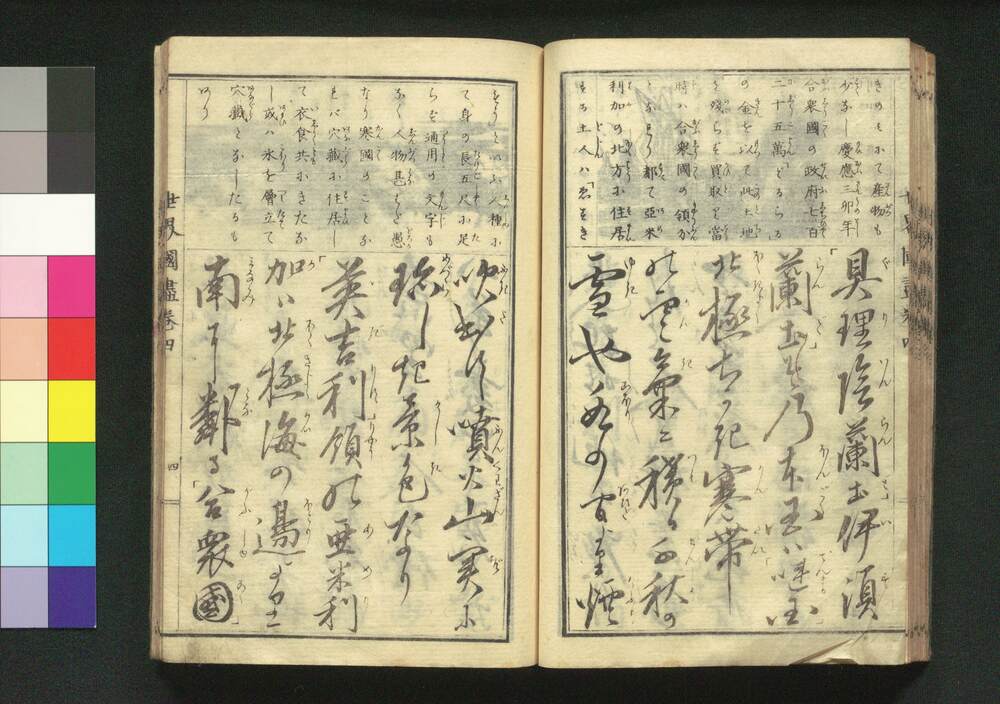 きのもにて産物も
少なし慶應三卯年
合衆國の政府七百
二十五萬どるらる
の金を以て此土地
を残らず買取り當
時ハ合衆國の領分
となり都て亞米
利加の北方に住居
する土人ハゑすき
具理陰蘭土伊須
蘭土其乃本国ハ嗹国
北極ちかき寒帯
の空氣に積る千秋の
雪や氷の間より煙
をうといふ人種に
て身の長五尺に足
らず通用の文字も
なく人物甚だ愚
なり寒國のことな
れバ穴藏に住居し
て衣食共にきたな
し或ハ氷を層立て
穴藏となしたるも
あり
吹出す噴火山実に
珍しき景色なり
英吉利領の亜米利
加ハ北極海の邉より
南に鄰る合衆國
世界國盡卷四
四